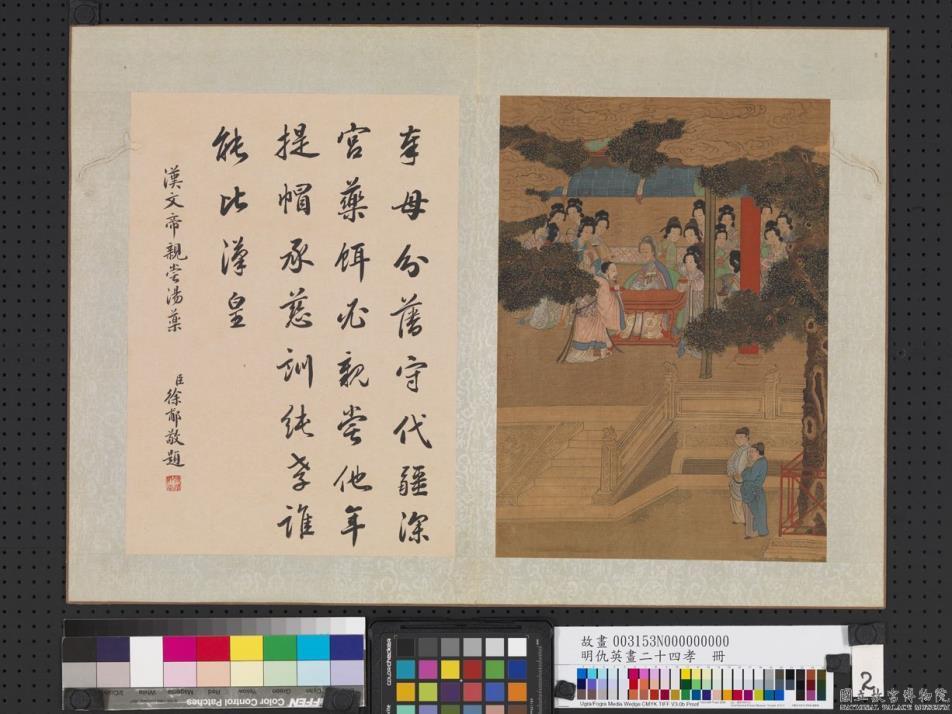 奉母分藩守代疆深
宮藥餌必親嘗他年
提帽承慈訓純孝誰
能比漢皇
漢文帝親嘗湯藥
臣徐郙敬題
故畫 003153N000000000
明仇英畫二十四孝 冊
Ugra/Fogra Media Wedge CMYK TIFF V3.0b Proof
2
Color Control Patches
colorchecker
國立故宮博物院
NATIONAL PALACE MUSEUM